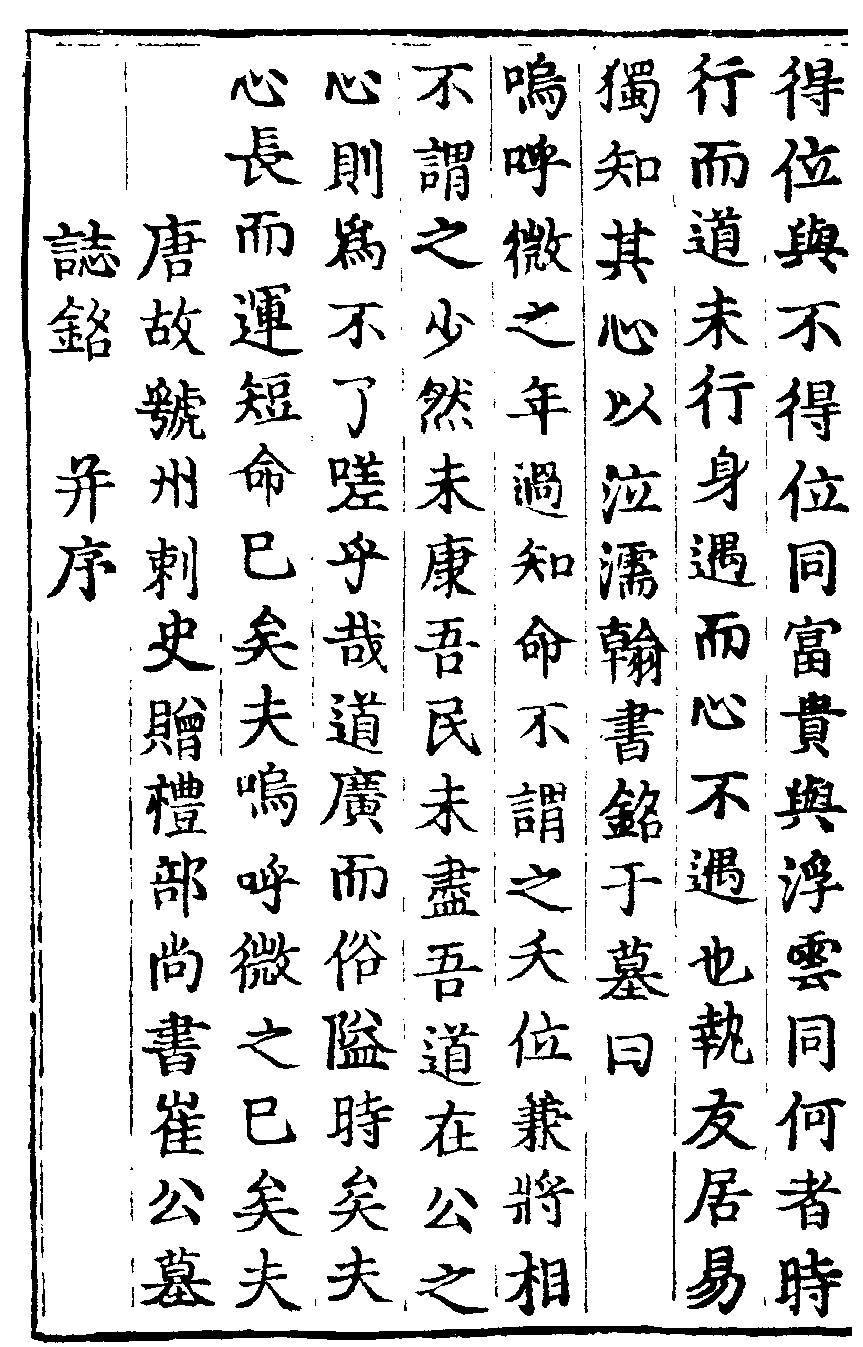 得位與不得位同富貴與浮雲同何者時
行而道未行身遇而心不遇也執友居易
獨知其心以泣濡翰書銘于墓曰
嗚呼微之年過知命不謂之夭位兼將相
不謂之少然未康吾民未盡吾道在公之
心則爲不了嗟乎哉道廣而俗隘時矣夫
心長而運短命已矣夫嗚呼微之已矣夫
唐故虢州刺史贈禮部尚書崔公墓
誌銘 并序